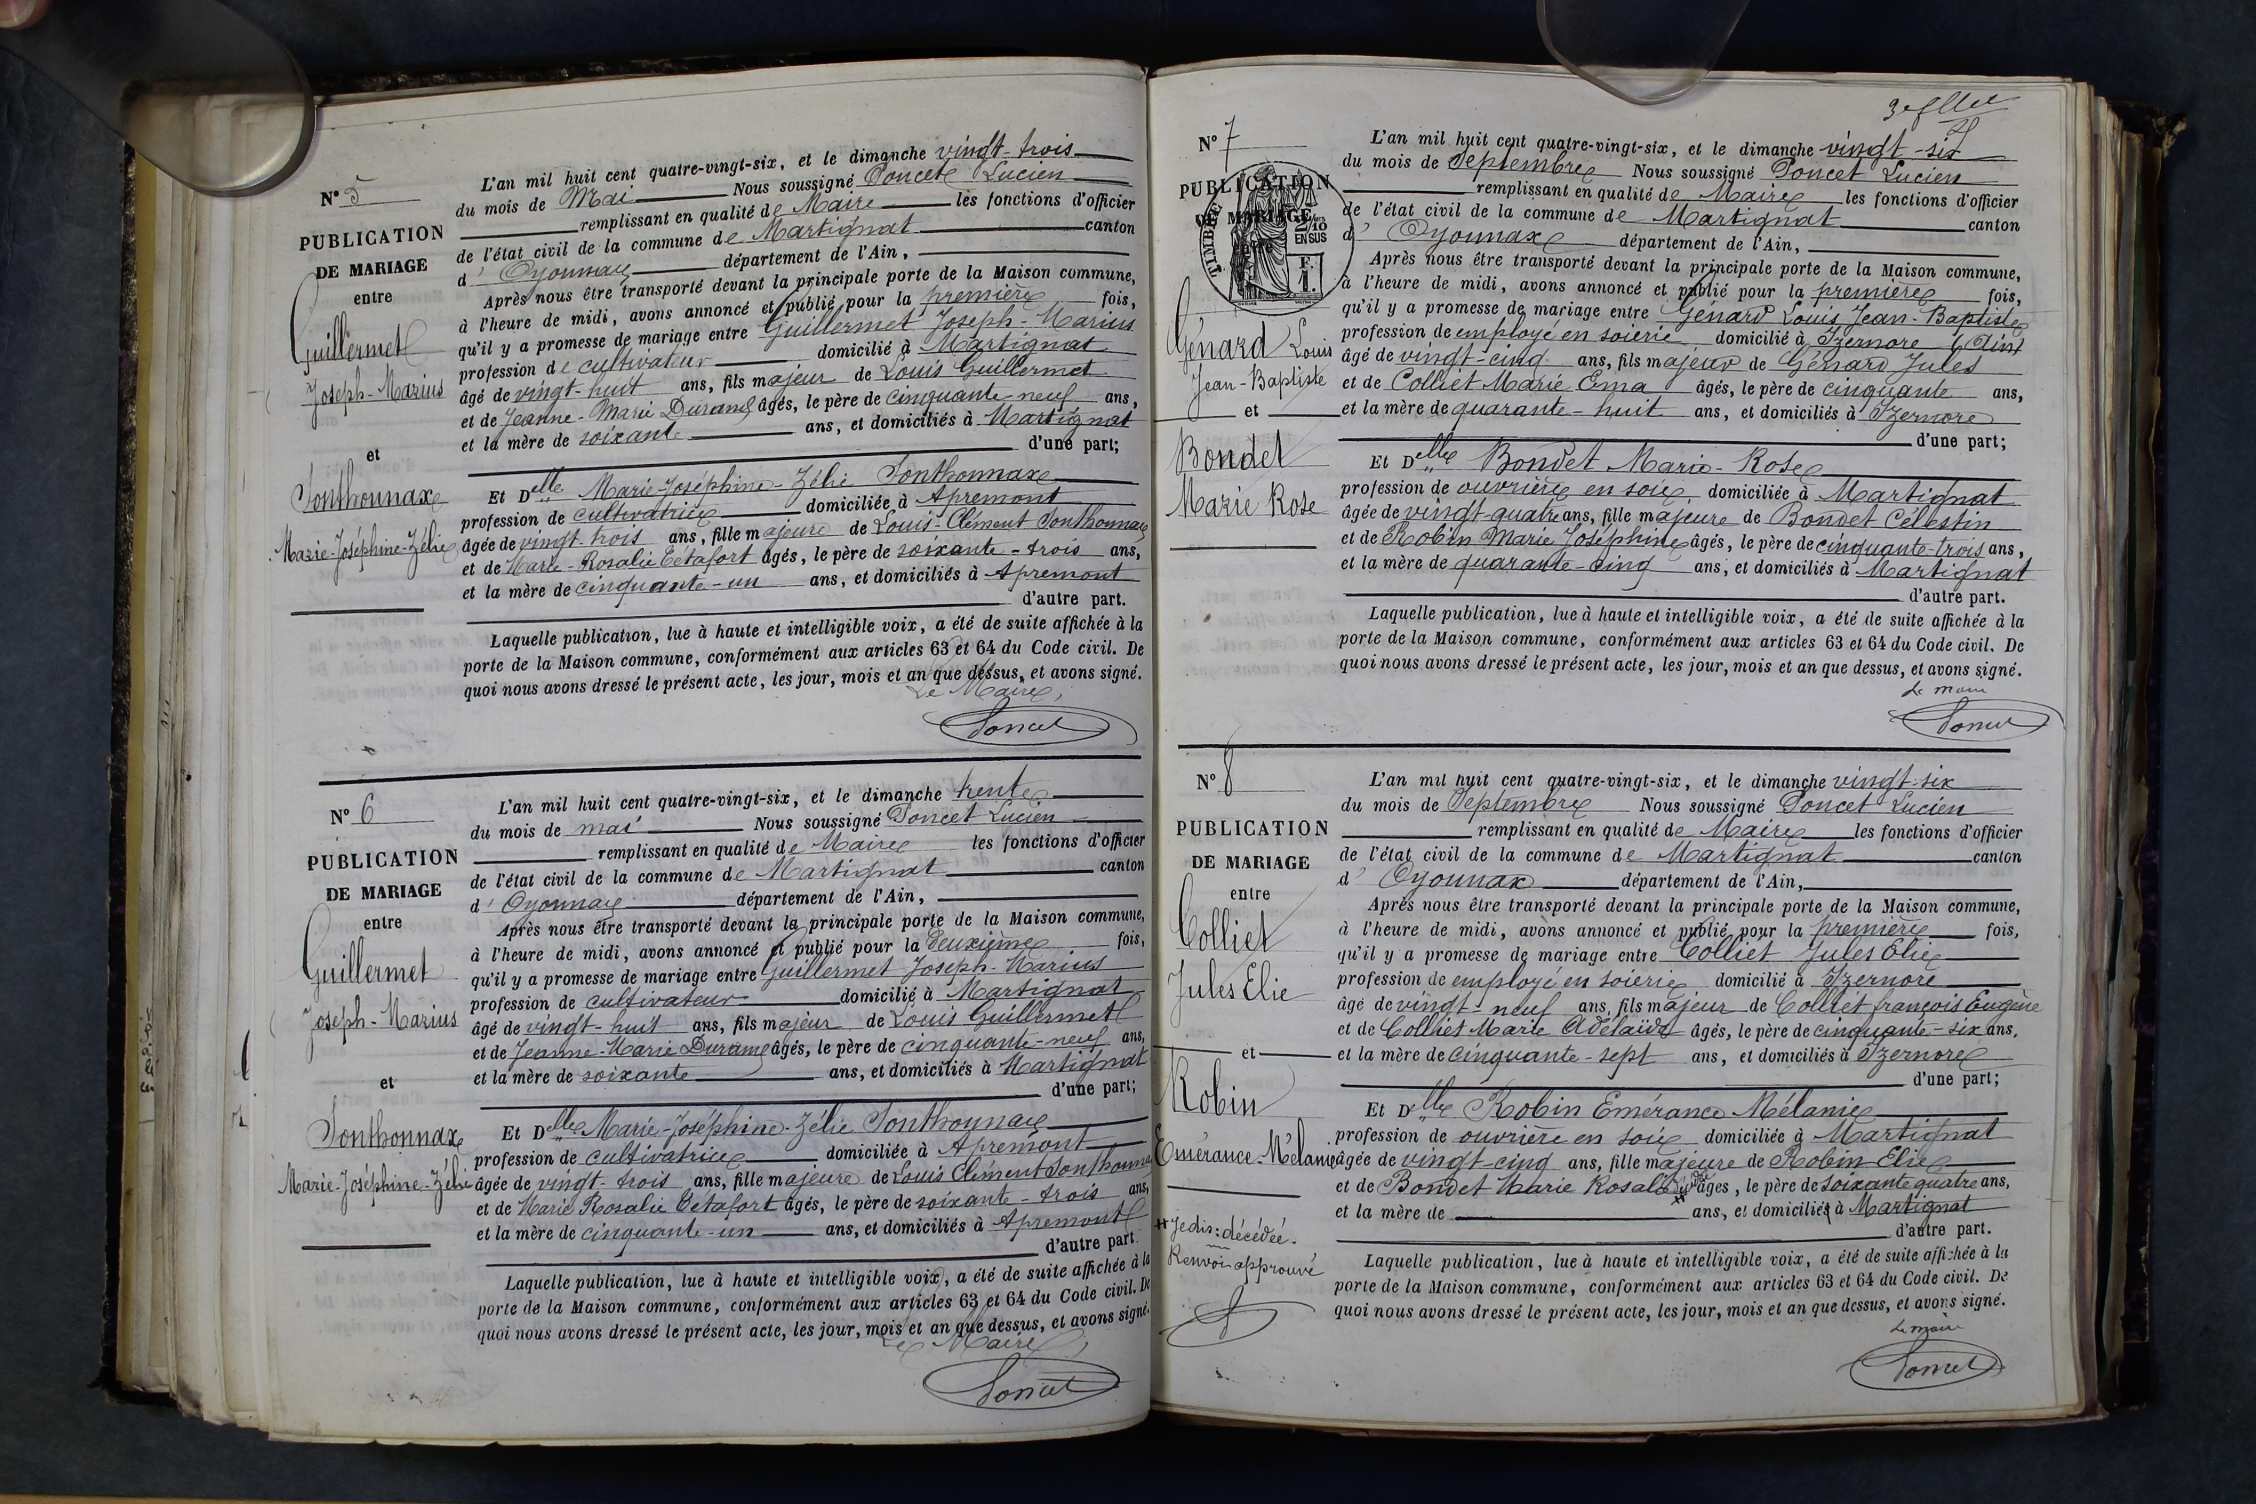 N° 5
PUBLICATION
DE MARIAGE
entre
Guillermet
Joseph-Marius
et
Sonthonnax
Marie-Joséphine-Zélie
L'an mil huit cent quatre-vingt-six, et le dimanche vingt-trois
du mois de Mai Nous soussigné Poncet Lucien
remplissant en qualité de Maire les fonctions d'officier
de l'état civil de la commune de Martignat canton
d' Oyonnax département de l'Ain,
Après nous être transporté devant la principale porte de la Maison commune,
à l'heure de midi, avons annoncé et publié pour la première fois,
qu'il y a promesse de mariage entre Guillermet Joseph-Marius
profession de cultivateur domicilié à Martignat
âgé de vingt-huit ans, fils majeur de Louis Guillermet
et de Jeanne-Marie Durand âgés, le père de cinquante-neuf ans,
et la mère de soixante ans, et domiciliés à Martignat
d'une part;
Et Delle Marie-Joséphine-Zélie Sonthonnax
profession de cultivatrice domiciliée à Apremont
âgée de vingt-trois ans, fille majeure de Louis-Clément Sonthonnax
et de Marie-Rosalie Tétafort âgés, le père de soixante-trois ans,
et la mère de cinquante-un ans, et domiciliés à Apremont
d'autre part.
Laquelle publication, lue à haute et intelligible voix, a été de suite affichée à la
porte de la Maison commune, conformément aux articles 63 et 64 du Code civil. De
quoi nous avons dressé le présent acte, les jour, mois et an que dessus, et avons signé.
Le Maire,
Poncet
N° 6
PUBLICATION
DE MARIAGE
entre
Guillermet
Joseph-Marius
et
Sonthonnax
Marie-Joséphine-Zélie
L'an mil huit cent quatre-vingt-six, et le dimanche trente
du mois de mai Nous soussigné Poncet Lucien
remplissant en qualité de Maire les fonctions d'officier
de l'état civil de la commune de Martignat canton
d' Oyonnax département de l'Ain,
Après nous être transporté devant la principale porte de la Maison commune,
à l'heure de midi, avons annoncé et publié pour la deuxième fois,
qu'il y a promesse de mariage entre Guillermet Joseph-Marius
profession de cultivateur domicilié à Martignat
âgé de vingt-huit ans, fils majeur de Louis Guillermet
et de Jeanne-Marie Durand âgés, le père de cinquante-neuf ans,
et la mère de soixante ans, et domiciliés à Martignat
d'une part;
Et Delle Marie-Joséphine-Zélie Sonthonnax
profession de cultivatrice domiciliée à Apremont
âgée de vingt-trois ans, fille majeure de Louis Clément Sonthonnax
et de Marie Rosalie Tétafort âgés, le père de soixante-trois ans,
et la mère de cinquante-un ans, et domiciliés à Apremont
d'autre part.
Laquelle publication, lue à haute et intelligible voix, a été de suite affichée à la
porte de la Maison commune, conformément aux articles 63 et 64 du Code civil. De
quoi nous avons dressé le présent acte, les jour, mois et an que dessus, et avons signé.
Le Maire,
Poncet
N° 7
PUBLICATION
DE MARIAGE
TIMBRE
2/10
EN SUS
F.
1.
Génard Louis
Jean-Baptiste
et
Bondet
Marie Rose
L'an mil huit cent quatre-vingt-six, et le dimanche vingt-six
du mois de Septembre Nous soussigné Poncet Lucien
remplissant en qualité de Maire les fonctions d'officier
de l'état civil de la commune de Martignat canton
d' Oyonnax département de l'Ain,
Après nous être transporté devant la principale porte de la Maison commune,
à l'heure de midi, avons annoncé et publié pour la première fois,
qu'il y a promesse de mariage entre Génard Louis Jean-Baptiste
profession de employé en soierie domicilié à Izernore (Ain)
âgé de vingt-cinq ans, fils majeur de Génard Jules
et de Colliet Marie Ema âgés, le père de cinquante ans,
et la mère de quarante-huit ans, et domiciliés à Izernore
d'une part;
Et Delle Bondet Marie-Rose
profession de ouvrière en soie, domiciliée à Martignat
âgée de vingt-quatre ans, fille majeure de Bondet Célestin
et de Robin Marie Joséphine âgés, le père de cinquante-trois ans,
et la mère de quarante-cinq ans, et domiciliés à Martignat
d'autre part.
Laquelle publication, lue à haute et intelligible voix, a été de suite affichée à la
porte de la Maison commune, conformément aux articles 63 et 64 du Code civil. De
quoi nous avons dressé le présent acte, les jour, mois et an que dessus, et avons signé.
Le maire
Poncet
N° 8
PUBLICATION
DE MARIAGE
entre
Colliet
Jules Elie
et
Robin
Emérance-Mélanie
Je dis: décédée.
Renvoi approuvé
L'an mil huit cent quatre-vingt-six, et le dimanche vingt-six
du mois de Septembre Nous soussigné Poncet Lucien
remplissant en qualité de Maire les fonctions d'officier
de l'état civil de la commune de Martignat canton
d' Oyonnax département de l'Ain,
Après nous être transporté devant la principale porte de la Maison commune,
à l'heure de midi, avons annoncé et publié pour la première fois,
qu'il y a promesse de mariage entre Colliet Jules Elie
profession de employé en soierie domicilié à Izernore
âgé de vingt-neuf ans, fils majeur de Colliet françois Eugène
et de Colliet Marie Adélaïde âgés, le père de cinquante-six ans,
et la mère de cinquante-sept ans, et domiciliés à Izernore
d'une part;
Et Delle Robin Emérance Mélanie
profession de ouvrière en soie domiciliée à Martignat
âgée de vingt-cinq ans, fille majeure de Robin Elie
et de Bondet Marie Rosalie âgés, le père de soixante quatre ans,
et la mère de ans, et domiciliés à Martignat
d'autre part.
Laquelle publication, lue à haute et intelligible voix, a été de suite affichée à la
porte de la Maison commune, conformément aux articles 63 et 64 du Code civil. De
quoi nous avons dressé le présent acte, les jour, mois et an que dessus, et avons signé.
Le maire
Poncet